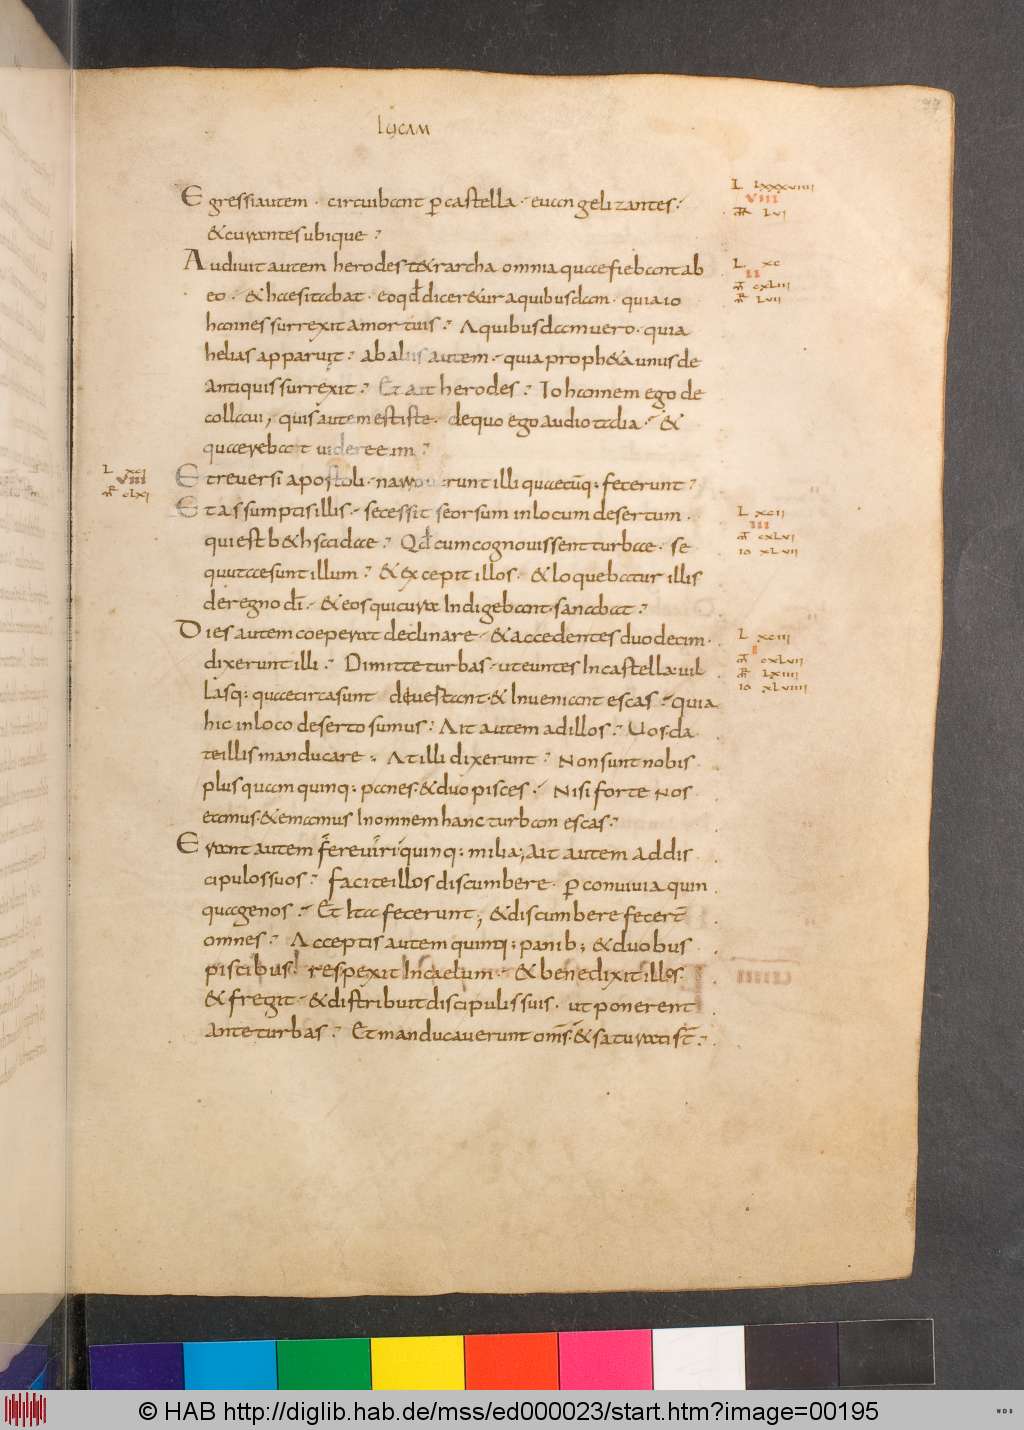 97
lucam
Egressi autem · circuibant ꝑ castella · euangelizantes ·
L LXXXVIIII
VIII
MR LVI
& curantes ubique ·
Audiuit autem herodes t&rarcha omnia quae fiebant ab
L XC
II
MT CXLIII
MR LVII
eo · & haesitabat · eo qđ dicer&ur a quibusdam · quia io
hannes surrexit a mortuis · A quibusdam uero · quia
helias apparuit · ab aliis autem · quia proph&a unus de
antiquis surrexit · Et ait herodes · Iohannem ego de
collaui, quis autem est iste · de quo ego audio talia · &
quaerebat uidere eum ·
L XCI
VIII
MR CLXI
Et reuersi apostoli · narrauerunt illi quaecūq: fecerunt ·
Et assumptis illis · secessit seorsum in locum desertum ·
L XCII
III
MT CXLVI
IO XLVII
qui est b&hsaidae · Qđ cum cognouissent turbae · se
quutae sunt illum · & excepit illos · & loquebatur illis
de regno di · & eos qui cura indigebant · sanabat ·
Dies autem coeperat declinare · & accedentes duodecim ·
L XCIII
I
MT CXLVII
MR LXIIII
IO XLVIIII
dixerunt illi · Dimitte turbas · ut euntes in castella uil
lasq: quae circa sunt deuertant · & inueniant escas · quia
hic in loco deserto sumus · Ait autem ad illos · Uos da
te illis manducare · At illi dixerunt · Non sunt nobis
plus quam quinq: panes · & duo pisces · Nisi forte nos
eamus · & emamus in omnem hanc turbam escas ·
Erant autem fere uiri quinq: milia; ait autem ad dis
cipulos suos · Facite illos discumbere · ꝑ conuiuia quin
quagenos · Et ita fecerunt; & discumbere fecer̄
omnes · Acceptis autem quinq: panib; & duobus
piscibus · respexit in caelum · & benedixit illos ·
& fregit · & distribuit discipulis suis · ut ponerent
ante turbas · Et manducauerunt om̄s · & saturati st̄ ·
© HAB http://diglib.hab.de/mss/ed000023/start.htm?image=00195
WDB